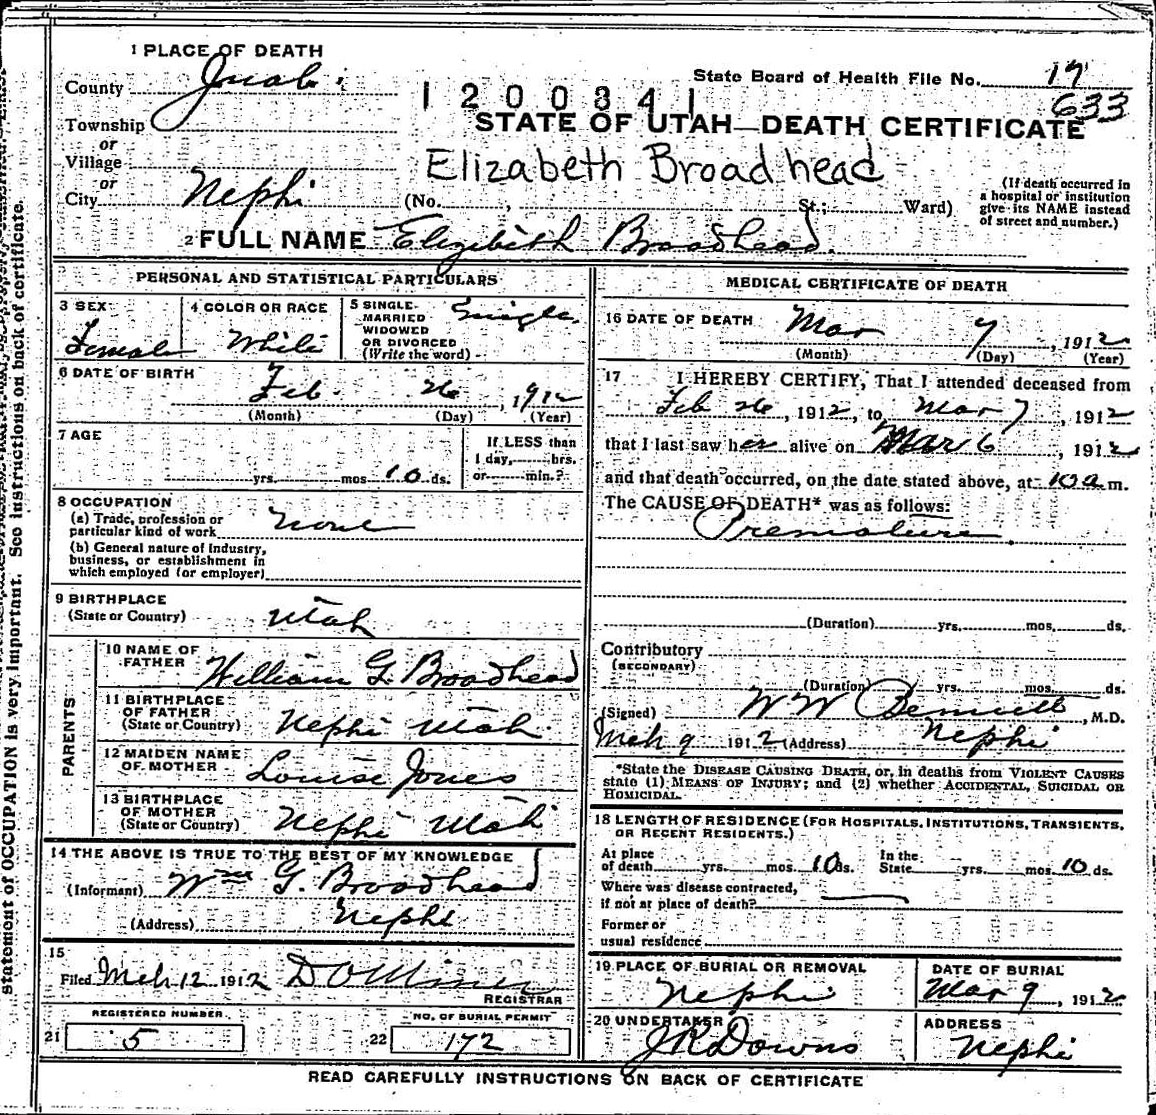 1 PLACE OF DEATH
County Juab
State Board of Health File No. 17
633
1200841
Township
or
Village
or
City Nephi
STATE OF UTAH—DEATH CERTIFICATE
Elizabeth Broadhead
(No. , St.; Ward)
(If death occurred in
a hospital or institution
give its NAME instead
of street and number.)
2 FULL NAME Elizibeth Broadhead.
PERSONAL AND STATISTICAL PARTICULARS
3 SEX
Female
4 COLOR OR RACE
White
5 SINGLE. Single
MARRIED
WIDOWED
OR DIVORCED
(Write the word)
6 DATE OF BIRTH
Feb. 26, 1912
(Month) (Day) (Year)
7 AGE
yrs. mos 10 ds.
If LESS than
1 day, hrs.
or min.?
8 OCCUPATION
(a) Trade, profession or
particular kind of work None
(b) General nature of Industry,
business, or establishment in
which employed (or employer)
9 BIRTHPLACE
(State or Country) Utah
PARENTS
10 NAME OF
FATHER William G. Broadhead
11 BIRTHPLACE
OF FATHER
(State or Country) Nephi Utah.
12 MAIDEN NAME
OF MOTHER Louise Jones
13 BIRTHPLACE
OF MOTHER
(State or Country) Nephi Utah
14 THE ABOVE IS TRUE TO THE BEST OF MY KNOWLEDGE
(Informant) Wm G. Broadhead
(Address) Nephi
15
Filed Mch 12 1912 D O Miner
REGISTRAR
REGISTERED NUMBER
21 5
NO. OF BURIAL PERMIT
22 172
MEDICAL CERTIFICATE OF DEATH
16 DATE OF DEATH Mar 7, 1912
(Month) (Day) (Year)
17 I HEREBY CERTIFY, That I attended deceased from
Feb 26, 1912, to Mar 7, 1912
that I last saw her alive on Mar 6, 1912
and that death occurred, on the date stated above, at 10 a m.
The CAUSE OF DEATH* was as follows:
Premature.
(Duration) yrs. mos. ds.
Contributory
(SECONDARY)
(Duration) yrs. mos. ds.
(Signed) W W Bennett, M.D.
Mch 9 1912 (Address) Nephi
*State the DISEASE CAUSING DEATH, or, in deaths from VIOLENT CAUSES
state (1) MEANS OF INJURY; and (2) whether ACCIDENTAL, SUICIDAL OR
HOMICIDAL.
18 LENGTH OF RESIDENCE (FOR HOSPITALS, INSTITUTIONS, TRANSIENTS,
OR RECENT RESIDENTS.)
At place
of death yrs. mos. 10 ds.
In the
State yrs. mos. 10 ds.
Where was disease contracted,
if not at place of death?
Former or
usual residence
19 PLACE OF BURIAL OR REMOVAL
Nephi
DATE OF BURIAL
Mar 9, 1912
20 UNDERTAKER
J R Downs
ADDRESS
Nephi
READ CAREFULLY INSTRUCTIONS ON BACK OF CERTIFICATE
statement of OCCUPATION is very important. See instructions on back of certificate.